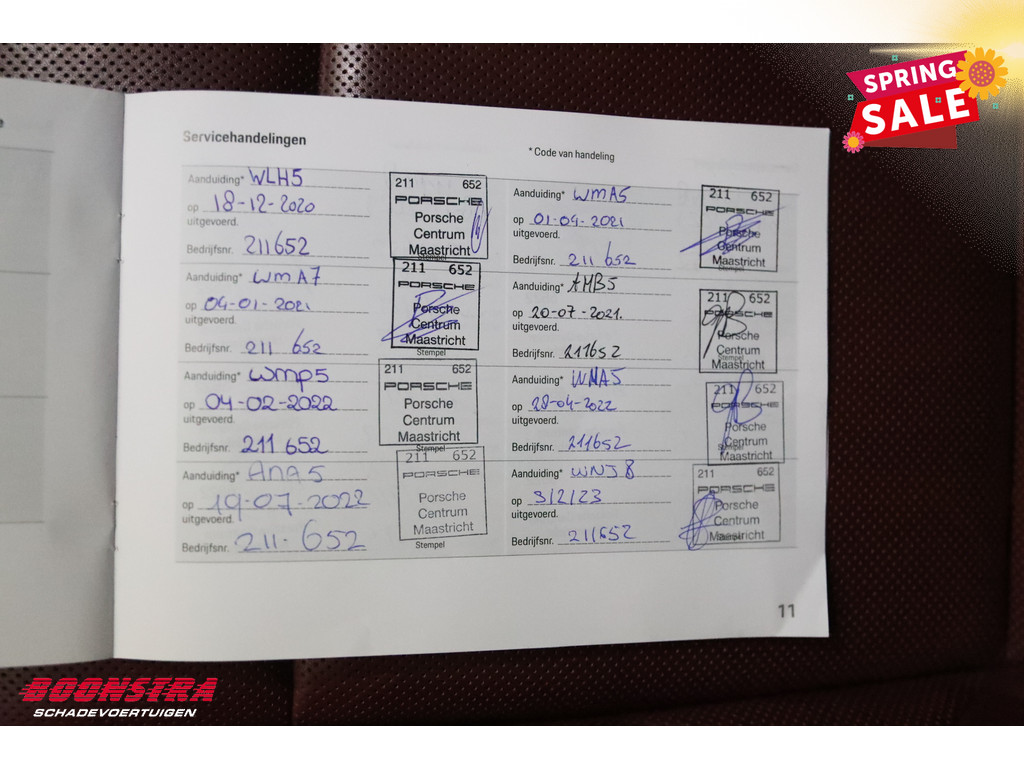 SPRING
SALE
Servicehandelingen
* Code van handeling
Aanduiding* WLH5
op 18-12-2020
uitgevoerd.
Bedrijfsnr. 211652
211 652
PORSCHE
Porsche
Centrum
Maastricht
Stempel
Aanduiding* WMA5
op
uitgevoerd.
Bedrijfsnr. 211 652
211 652
PORSCHE
Porsche
Centrum
Maastricht
Stempel
Aanduiding* WMA7
op 04-01-2021
uitgevoerd.
Bedrijfsnr. 211 652
211 652
PORSCHE
Porsche
Centrum
Maastricht
Stempel
Aanduiding* AMB5
op 20-07-2021.
uitgevoerd.
Bedrijfsnr. 211652
211 652
PORSCHE
Porsche
Centrum
Maastricht
Stempel
Aanduiding* WMP5
op 04-02-2022
uitgevoerd.
Bedrijfsnr. 211 652
211 652
PORSCHE
Porsche
Centrum
Maastricht
Stempel
Aanduiding* WMA5
op 28-04-2022
uitgevoerd.
Bedrijfsnr. 211652
211 652
PORSCHE
Porsche
Centrum
Maastricht
Stempel
Aanduiding*
op 19-07-2022
uitgevoerd.
Bedrijfsnr. 211-652
211 652
PORSCHE
Porsche
Centrum
Maastricht
Stempel
Aanduiding* WNJ8
op 3/2/23
uitgevoerd.
Bedrijfsnr. 211652
211 652
PORSCHE
Porsche
Centrum
Maastricht
Stempel
11
BOONSTRA
SCHADEVOERTUIGEN